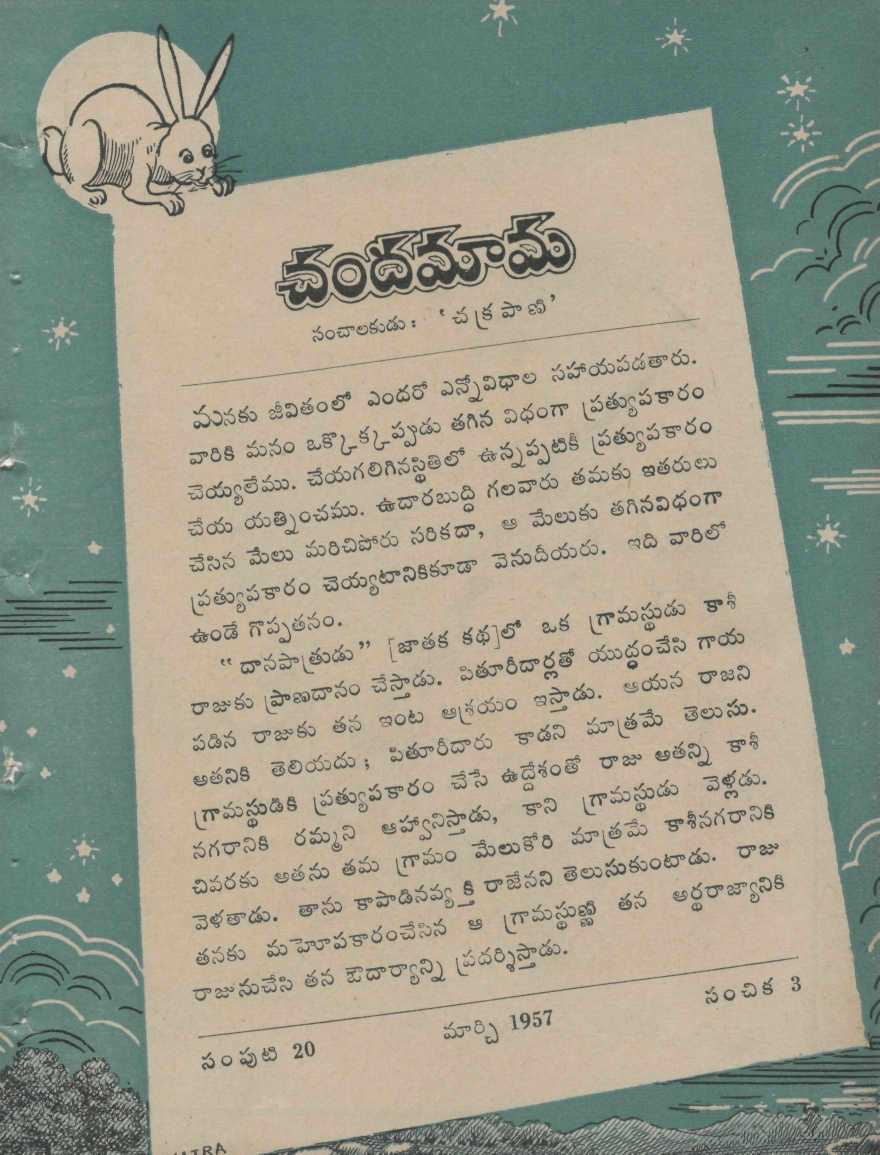 చందమామ
సంచాలకుడు : ‘చక్రపాణి’
మనకు జీవితంలో ఎందరో ఎన్నోవిధాల సహాయపడతారు.
వారికి మనం ఒక్కొక్కప్పుడు తగిన విధంగా ప్రత్యుపకారం
చెయ్యలేము. చేయగలిగినస్థితిలో ఉన్నప్పటికీ ప్రత్యుపకారం
చేయ యత్నించము. ఉదారబుద్ధి గలవారు తమకు ఇతరులు
చేసిన మేలు మరిచిపోరు సరికదా, ఆ మేలుకు తగినవిధంగా
ప్రత్యుపకారం చెయ్యటానికికూడా వెనుదీయరు. ఇది వారిలో
ఉండే గొప్పతనం.
“దానపాత్రుడు” [జాతక కథ]లో ఒక గ్రామస్థుడు కాశీ
రాజుకు ప్రాణదానం చేస్తాడు. పితూరీదార్లతో యుద్ధంచేసి గాయ
పడిన రాజుకు తన ఇంట ఆశ్రయం ఇస్తాడు. ఆయన రాజని
అతనికి తెలియదు ; పితూరీదారు కాడని మాత్రమే తెలుసు.
గ్రామస్థుడికి ప్రత్యుపకారం చేసే ఉద్దేశంతో రాజు అతన్ని కాశీ
నగరానికి రమ్మని ఆహ్వానిస్తాడు, కాని గ్రామస్థుడు వెళ్లడు.
చివరకు అతను తమ గ్రామం మేలుకోరి మాత్రమే కాశీనగరానికి
వెళతాడు. తాను కాపాడినవ్యక్తి రాజేనని తెలుసుకుంటాడు. రాజు
తనకు మహోపకారంచేసిన ఆ గ్రామస్థుణ్ణి తన అర్థరాజ్యానికి
రాజునుచేసి తన ఔదార్యాన్ని ప్రదర్శిస్తాడు.
సంపుటి 20 మార్చి 1957 సంచిక 3